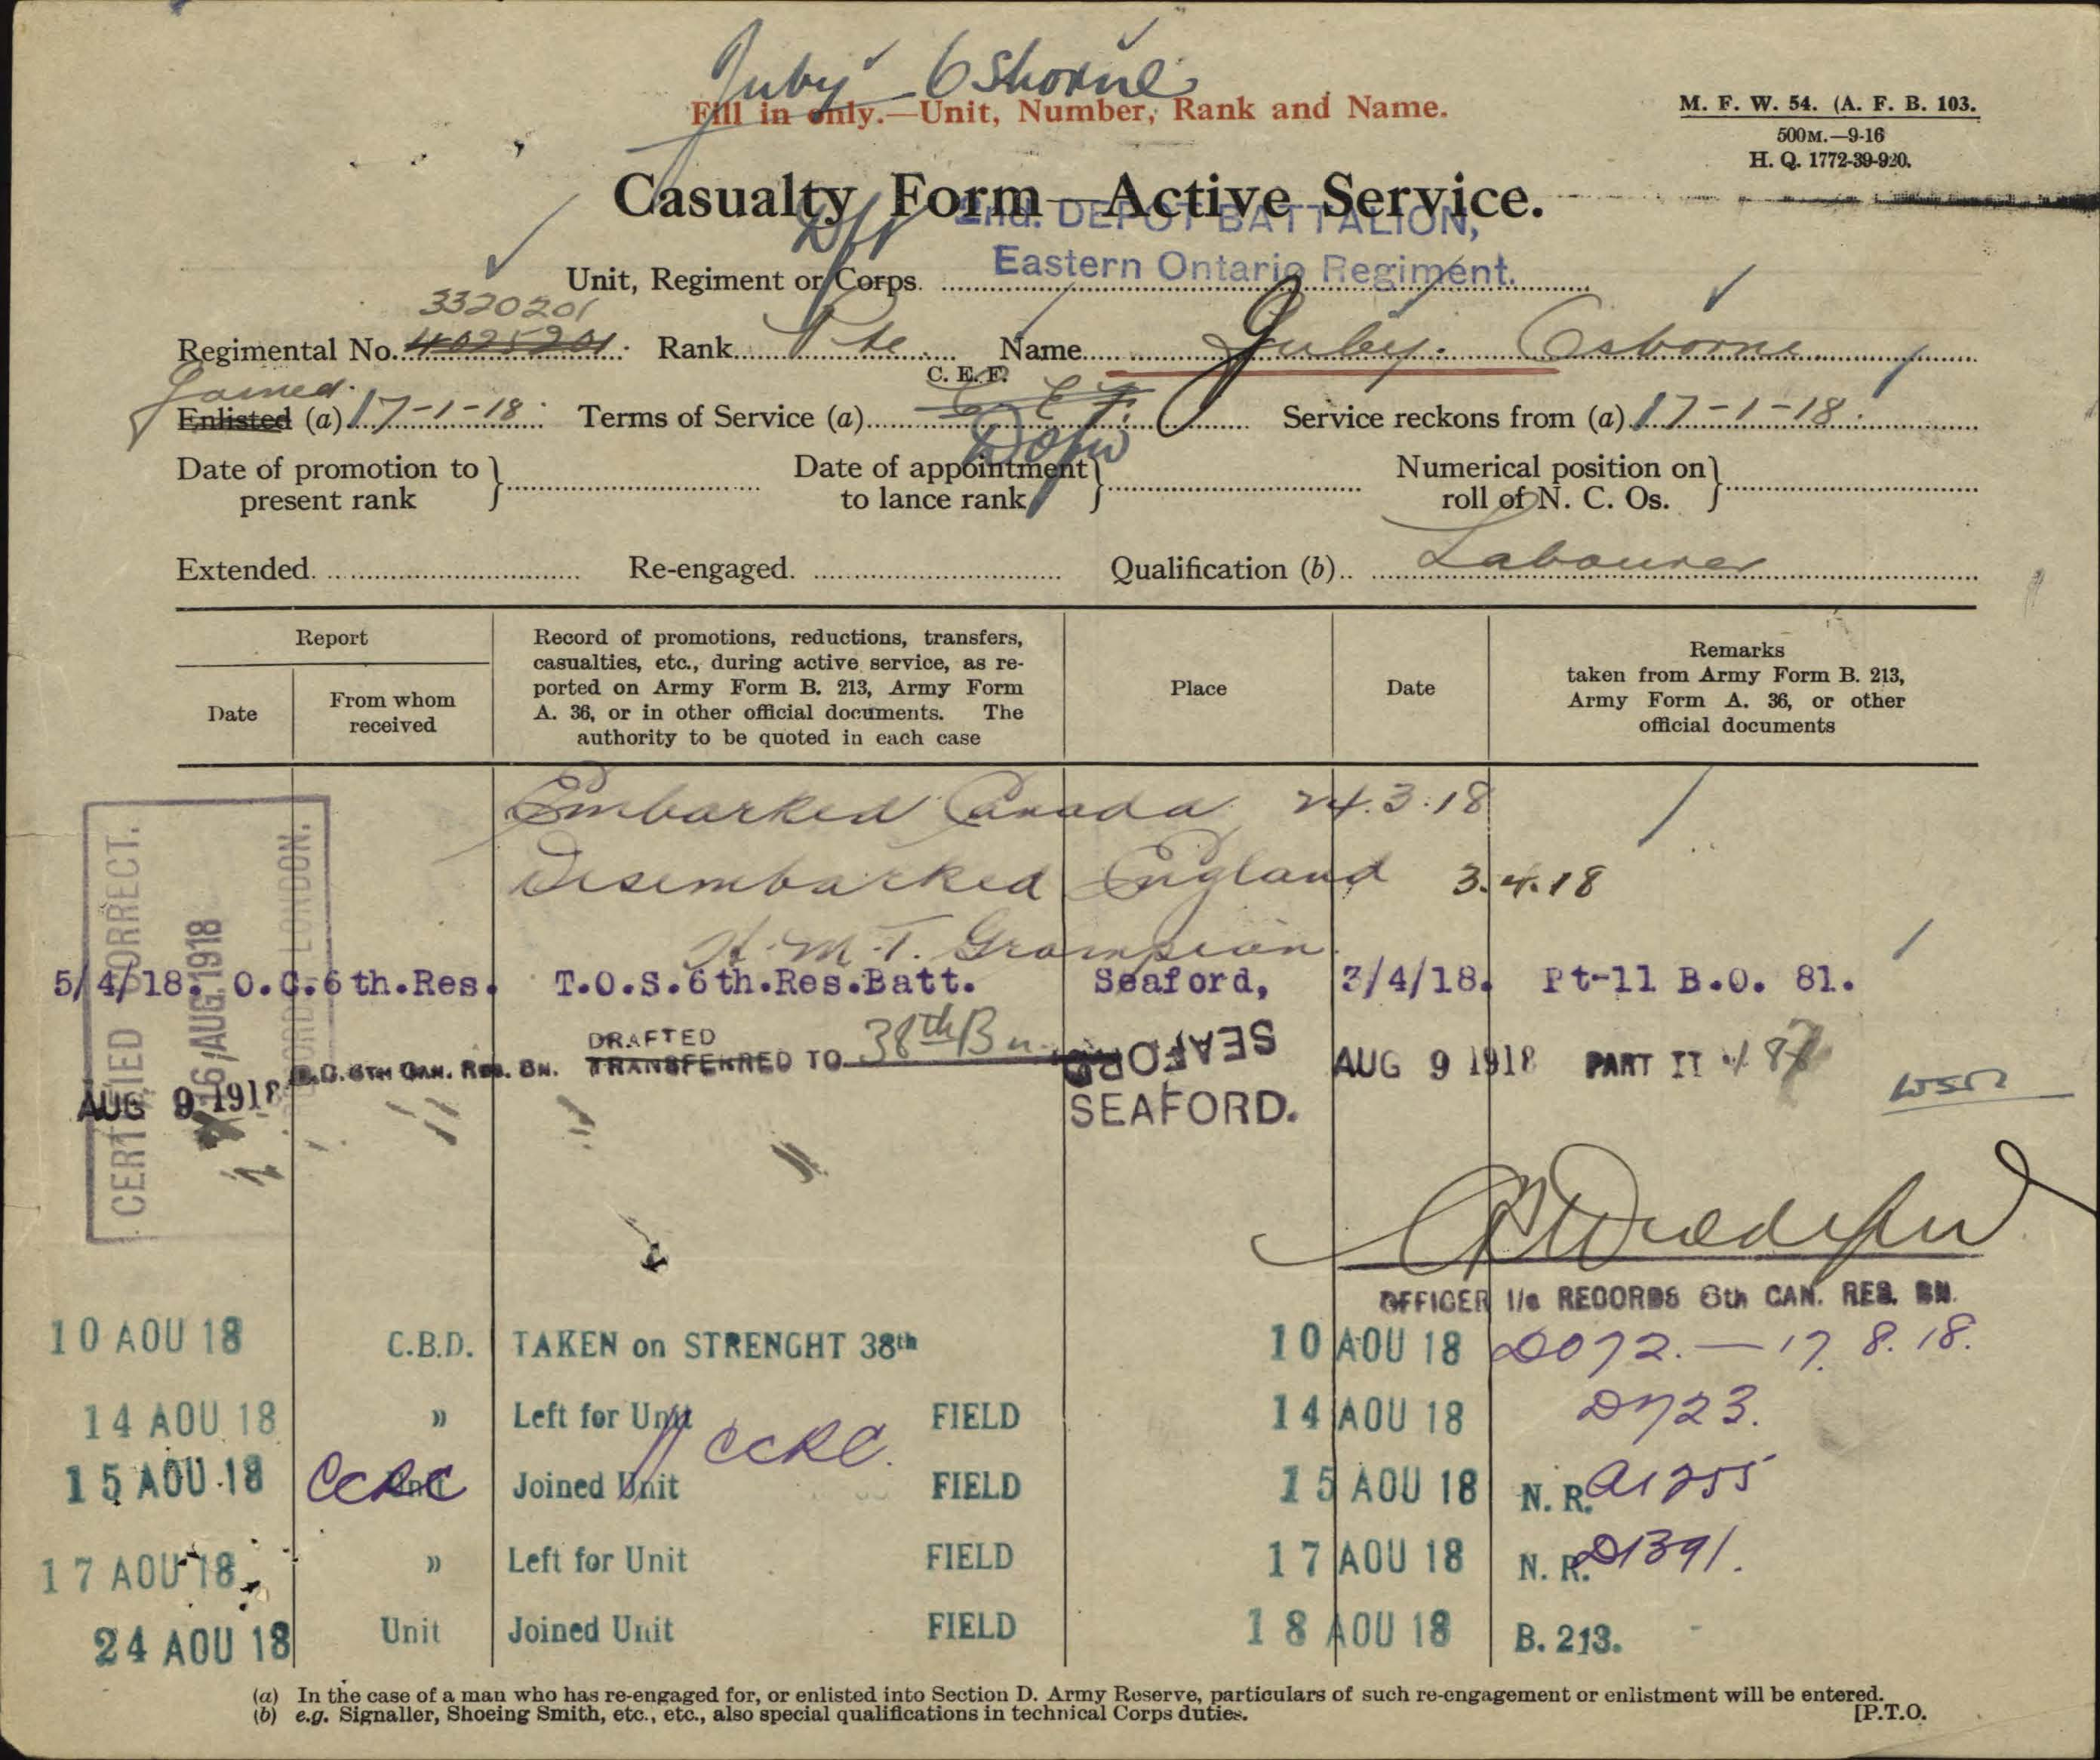 Juby Osborne
Fill in only.—Unit, Number, Rank and Name.
M. F. W. 54. (A. F. B. 103.
500M.—9-16
H. Q. 1772-39-920.
Casualty Form—Active Service.
2nd. DEPOT BATTALION,
Unit, Regiment or Corps. Eastern Ontario Regiment.
3320201
Regimental No. 4025201. Rank Pte. Name Juby. Osborne
Joined. C. E. F.
Enlisted (a) 17-1-18. Terms of Service (a) C E F. Service reckons from (a) 17-1-18.
Date of promotion to present rank Date of appointment to lance rank Numerical position on roll of N. C. Os.
Extended. Re-engaged. Qualification (b) Labourer
Report
Date
From whom received
Record of promotions, reductions, transfers,
casualties, etc., during active service, as re-
ported on Army Form B. 213, Army Form
A. 36, or in other official documents. The
authority to be quoted in each case
Place
Date
Remarks
taken from Army Form B. 213,
Army Form A. 36, or other
official documents
Embarked Canada 24.3.18
Disembarked England 3.4.18
H.M.T. Grampian.
5/4/18. O.C.6th.Res. T.O.S.6th.Res.Batt. Seaford, 3/4/18. Pt-11 B.O. 81.
CERTIFIED CORRECT.
16 AUG 1918
RECORD LONDON.
AUG 9 1918 O.C. 6TH CAN. RES. BN. DRAFTED TRANSFERRED TO 38th Bn SEAFORD SEAFORD. AUG 9 1918 PART II 187
OFFICER I/c RECORDS 6th CAN. RES. BN.
10 AOU 18 C.B.D. TAKEN on STRENGHT 38th 10 AOU 18 DO72.—17. 8. 18.
14 AOU 18 " Left for Unit CCRC. FIELD 14 AOU 18 D723.
15 AOU 18 CCRC Unit Joined Unit FIELD 15 AOU 18 N. R. A1255
17 AOU 18 " Left for Unit FIELD 17 AOU 18 N. R. D1391.
24 AOU 18 Unit Joined Unit FIELD 18 AOU 18 B. 213.
(a) In the case of a man who has re-engaged for, or enlisted into Section D. Army Reserve, particulars of such re-engagement or enlistment will be entered.
(b) e.g. Signaller, Shoeing Smith, etc., etc., also special qualifications in technical Corps duties. [P.T.O.